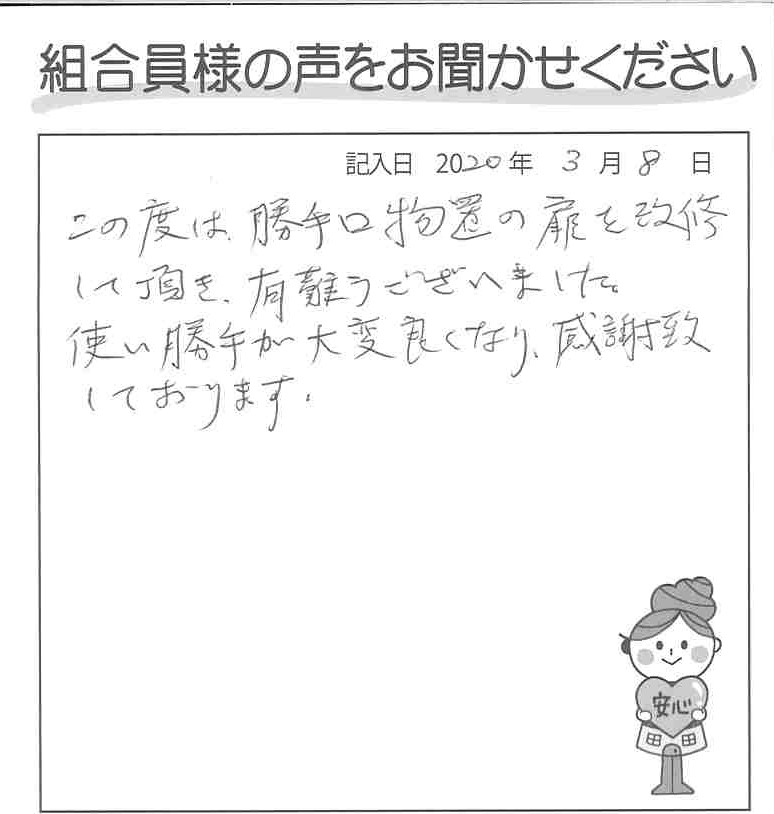 組合員様の声をお聞かせください
記入日 2020年 3月8日
この度は、勝手口物置の扉を改修
して頂き、有難うございました。
使い勝手が大変良くなり、感謝致
しております。
安心